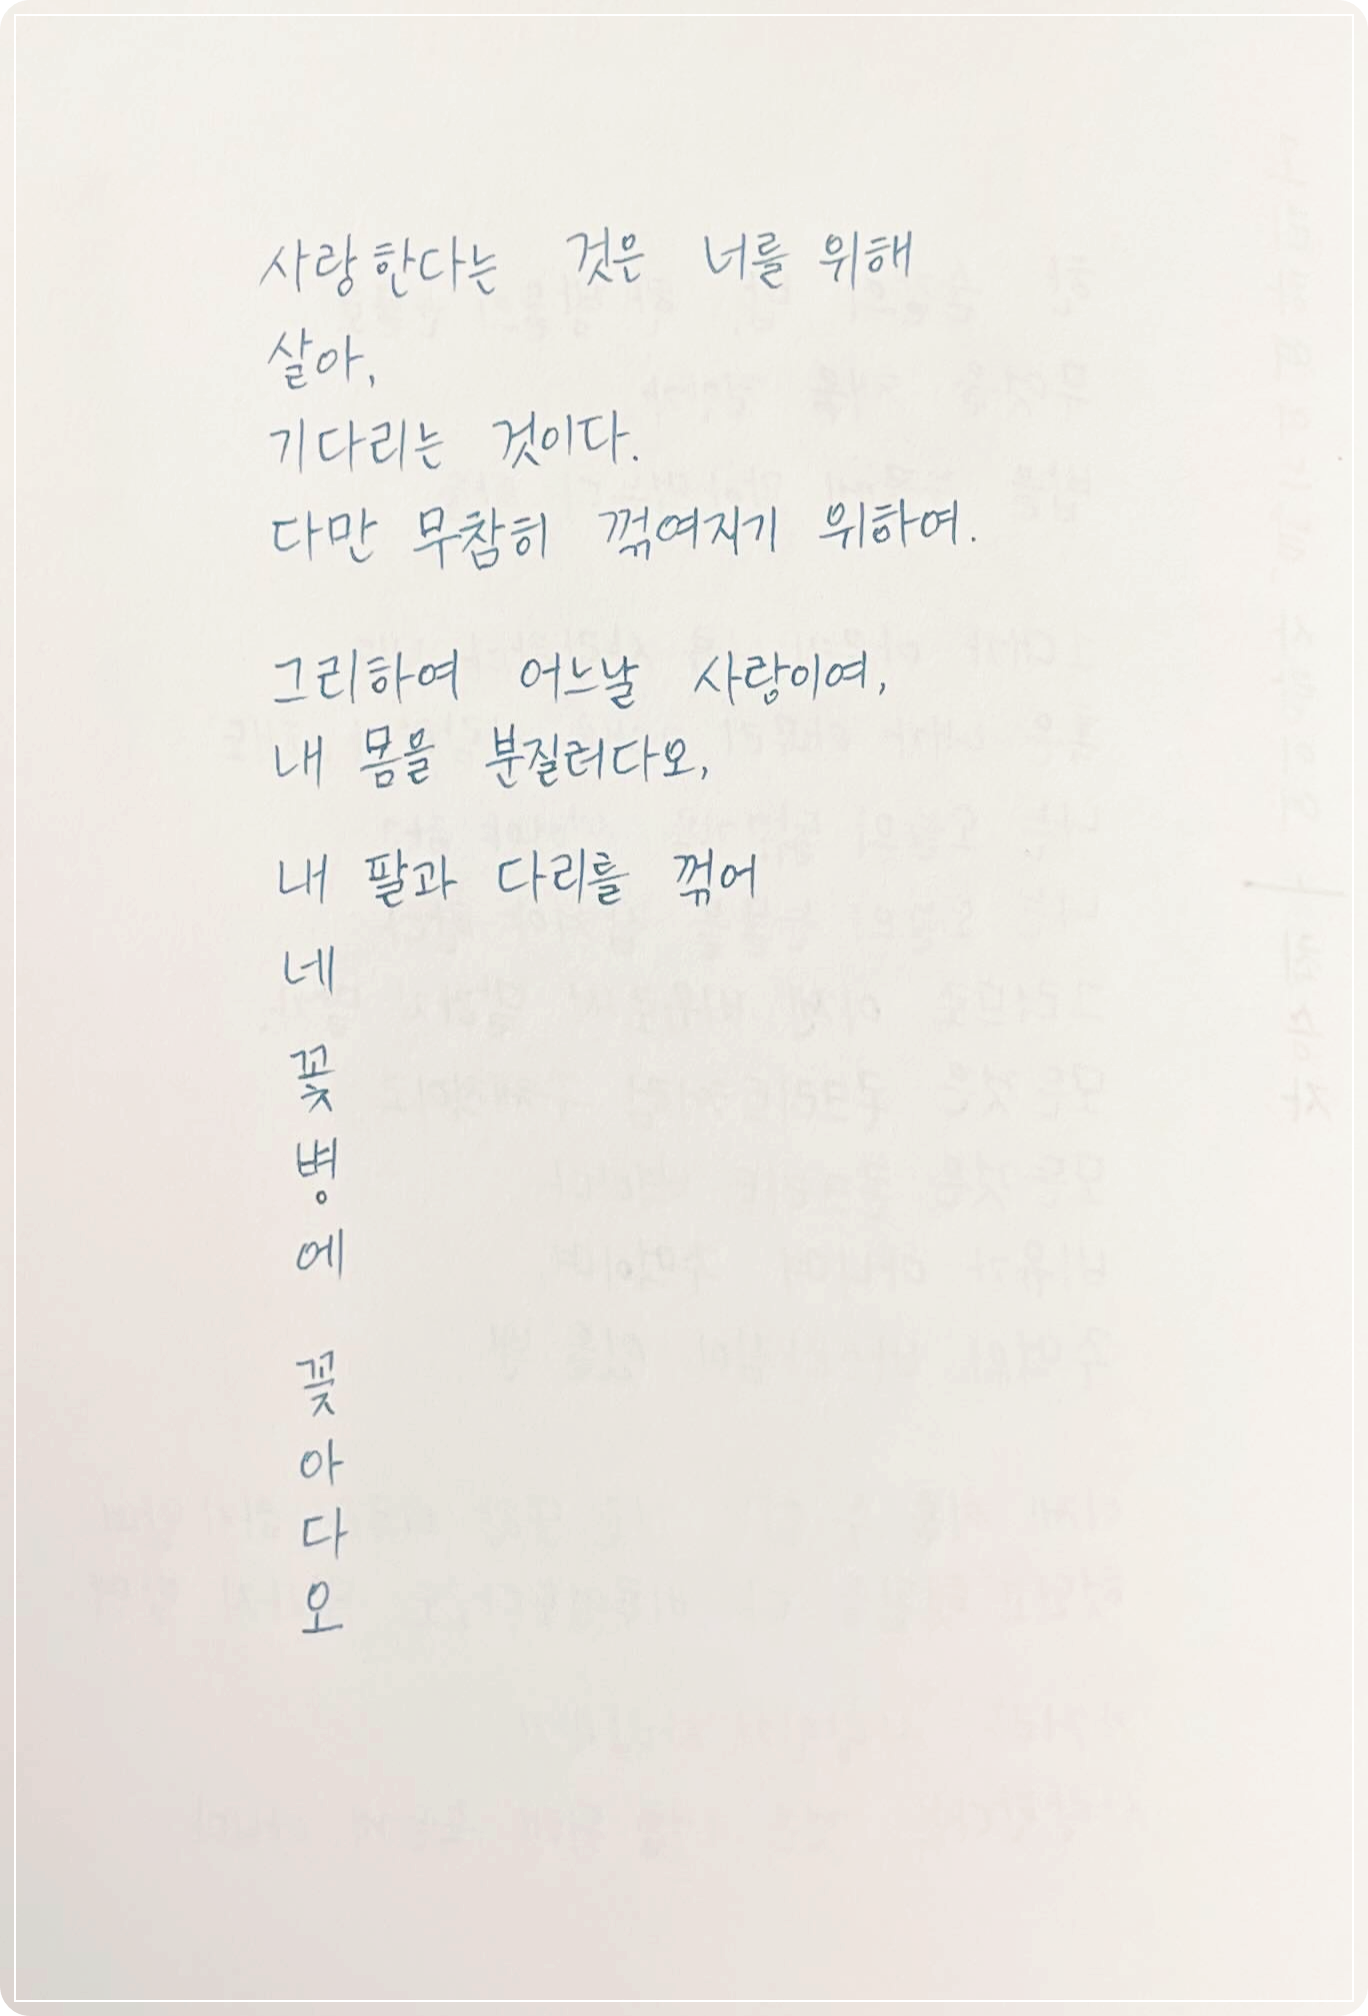 사랑한다는 것은 너를 위해
살아,
기다리는 것이다.
다만 무참히 꺾여지기 위하여.
그리하여 어느날 사랑이여,
내 몸을 분질러다오,
내 팔과 다리를 꺾어
네
꽃
병
에
꽂
아
다
오